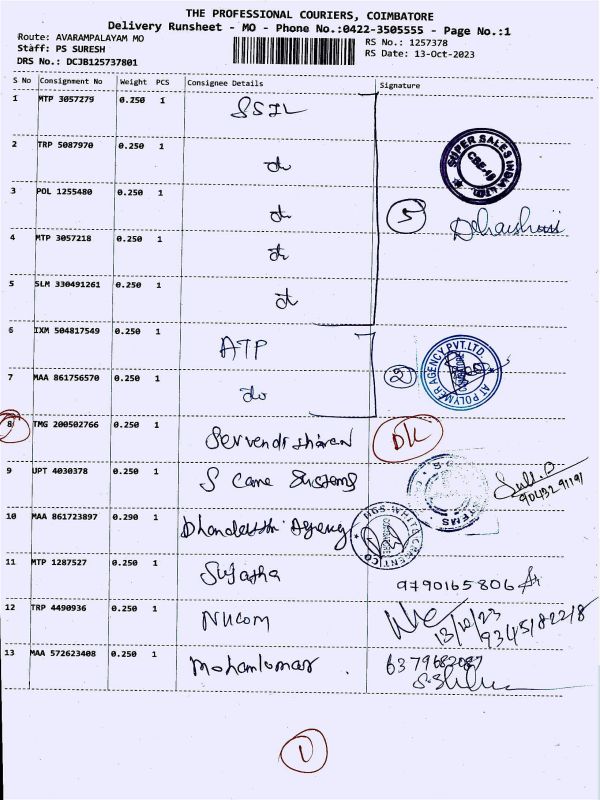 THE PROFESSIONAL COURIERS, COIMBATORE
Delivery Runsheet - MO - Phone No.:0422-3505555 - Page No.:1
Route: AVARAMPALAYAM MO
RS No.: 1257378
Staff: PS SURESH
RS Date: 13-Oct-2023
DRS No.: DCJB125737801
S No Consignment No Weight PCS Consignee Details Signature
1 MTP 3057279 0.250 1 SSIL
2 TRP 5087970 0.250 1 do
SUPER SALES INDIA LTD
3 POL 1255480 0.250 1 do
5
4 MTP 3057218 0.250 1 do
5 SLM 330491261 0.250 1 do
6 IXM 504817549 0.250 1 ATP
AT POLYMER AGENCY PVT.LTD.
7 MAA 861756570 0.250 1 do 2
8 TMG 200502766 0.250 1 DL
9 UPT 4030378 0.250 1 S Systems
90432 91191
10 MAA 861723897 0.290 1 Agency
HGS WHITE CEMENT CO
11 MTP 1287527 0.250 1 Sujatha 9790165806
12 TRP 4490936 0.250 1 Nucom 13/10/23
9345182218
13 MAA 572623408 0.250 1 Mohankumar
1